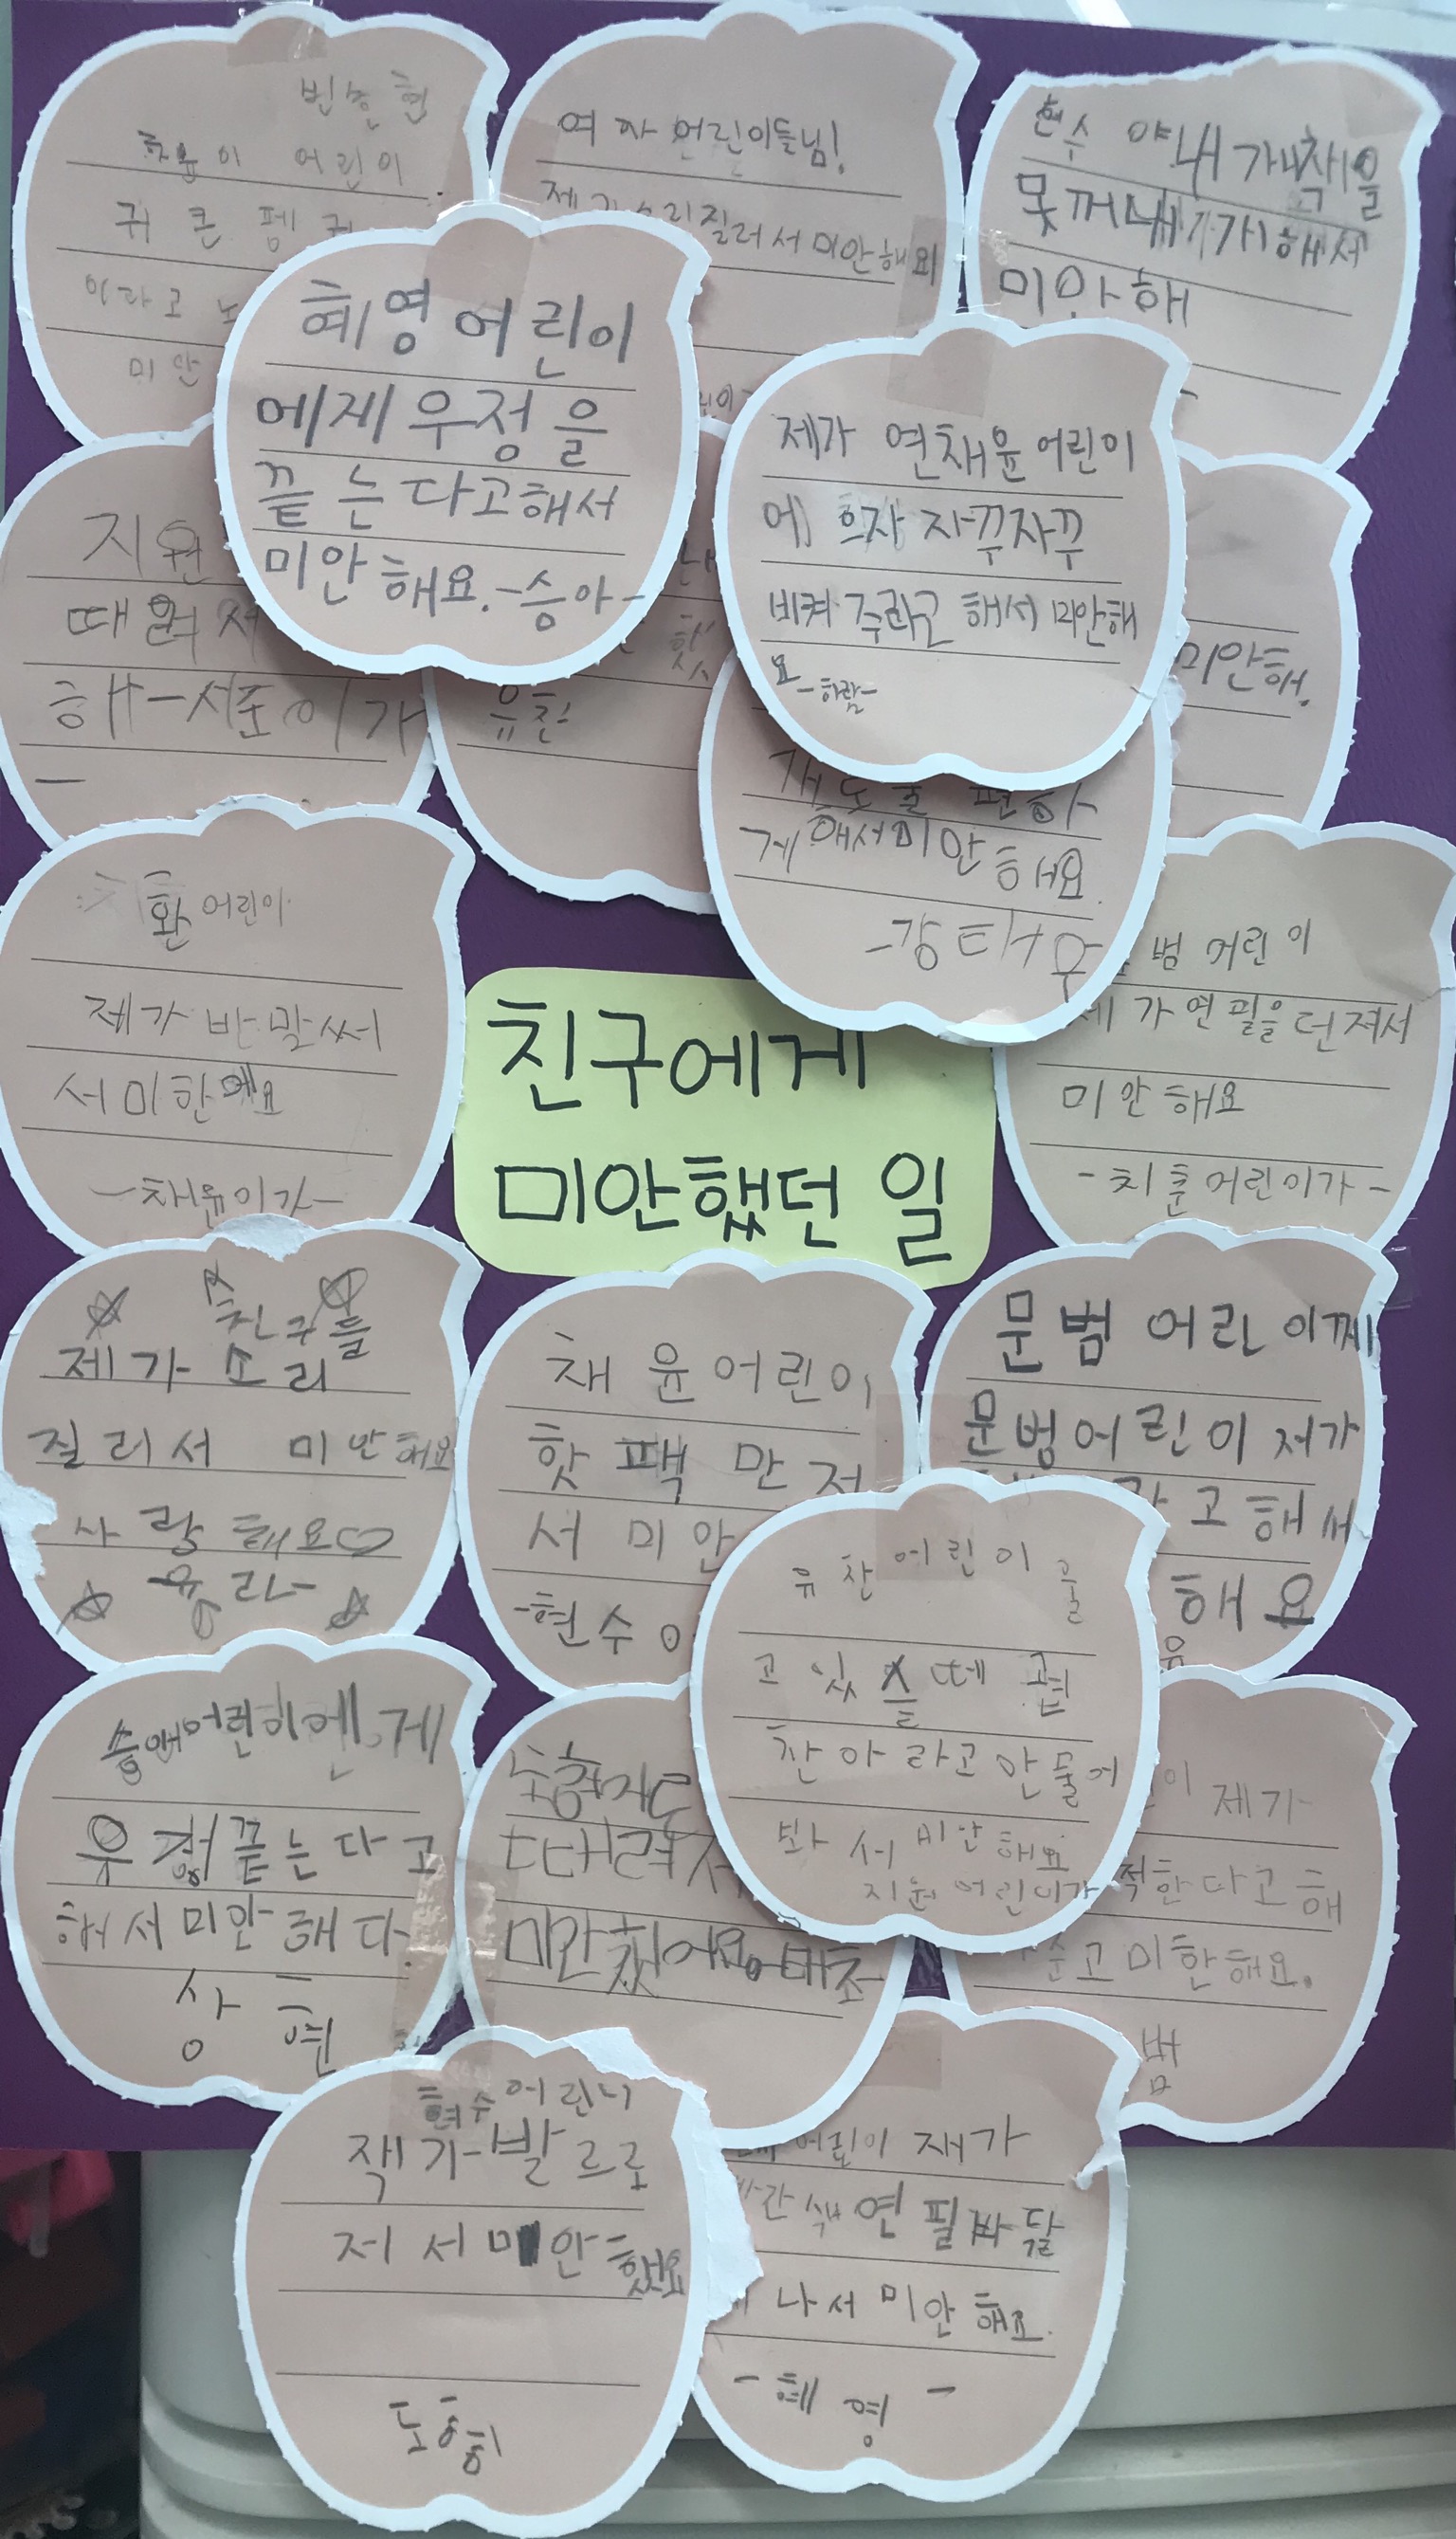 빈승현
어린이
귀 큰 펭귄
이라고
미안
여자 어린이들님!
제가 소리질러서 미안해요
현수야 내가 책을
못꺼내가가해서
미안해
혜영어린이
에게 우정을
끝는다고해서
미안해요. -승아-
제가 연채윤어린이
에 의자 자꾸자꾸
비켜 주라고 해서 미안해
요 -하람-
지원
때려서
해-서준이가
-
유찬
미안해.
편하
게 해서미안해요.
-강태우
환어린이
제가 반말써
서미한해요
-채윤이가-
친구에게
미안했던 일
범 어린이
제가연필을던져서
미안해요
-치훈어린이가-
친구들
제가 소리
질러서 미안해요
사랑해요♡
-유라-
채윤어린이
핫팩 만저
서 미안
-현수이
문범 어린이께
문벙어린이 저가
고해써
해요
유
유찬어린이
고 있을때 괜
찬아라고 안물어
봐서 미안해요
지원어린이가
승애어린히엔게
우정끝는다고
해서미안해다.
상현
때려저
미안했어요.
제가
적한다고해
고미한해요.
범
현수어린니
잭가발르로
저서미안했요
도흠
어린이 재가
간색연필빠달
나서 미안해요.
-혜영-